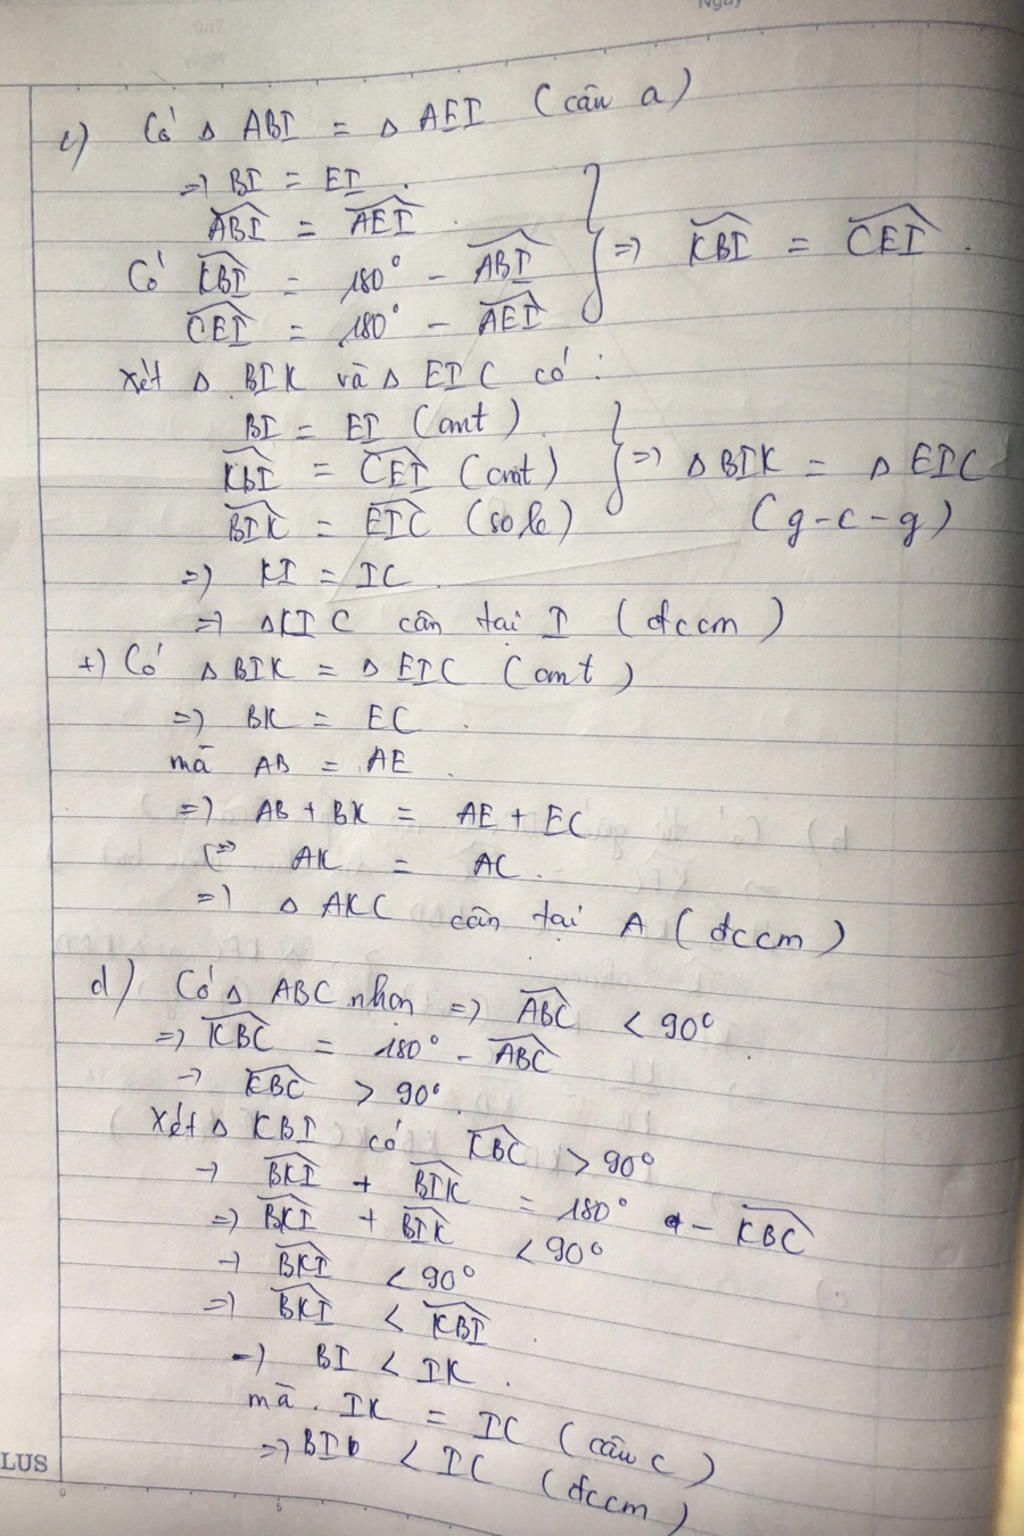 c) Có Δ ABI = Δ AEI (câu a)
=> BI = EI.
ABI^ = AEI^.
Có KBI^ = 180° - ABI^
CEI^ = 180° - AEI^
} => KBI^ = CEI^.
Xét Δ BIK và Δ EIC có:
BI = EI (cmt)
KBI^ = CEI^ (cmt)
BIK^ = EIC^ (so le)
} => Δ BIK = Δ EIC
(g-c-g)
=> KI = IC.
=> ΔKIC cân tại I (đccm)
+) Có Δ BIK = Δ EIC (cmt)
=> BK = EC.
mà AB = AE.
=> AB + BK = AE + EC
(=> AK = AC.
=> Δ AKC cân tại A (đccm)
d) Có Δ ABC nhọn => ABC^ < 90°
=> KBC^ = 180° - ABC^
-> KBC^ > 90°.
Xét Δ KBI có KBC^ > 90°
-> BKI^ + BIK^ = 180° - KBC^
=> BKI^ + BIK^ < 90°
-> BKI^ < 90°
=> BKI^ < KBI^.
-> BI < IK.
mà. IK = IC (câu c)
=> BI < IC (đccm)
LUS